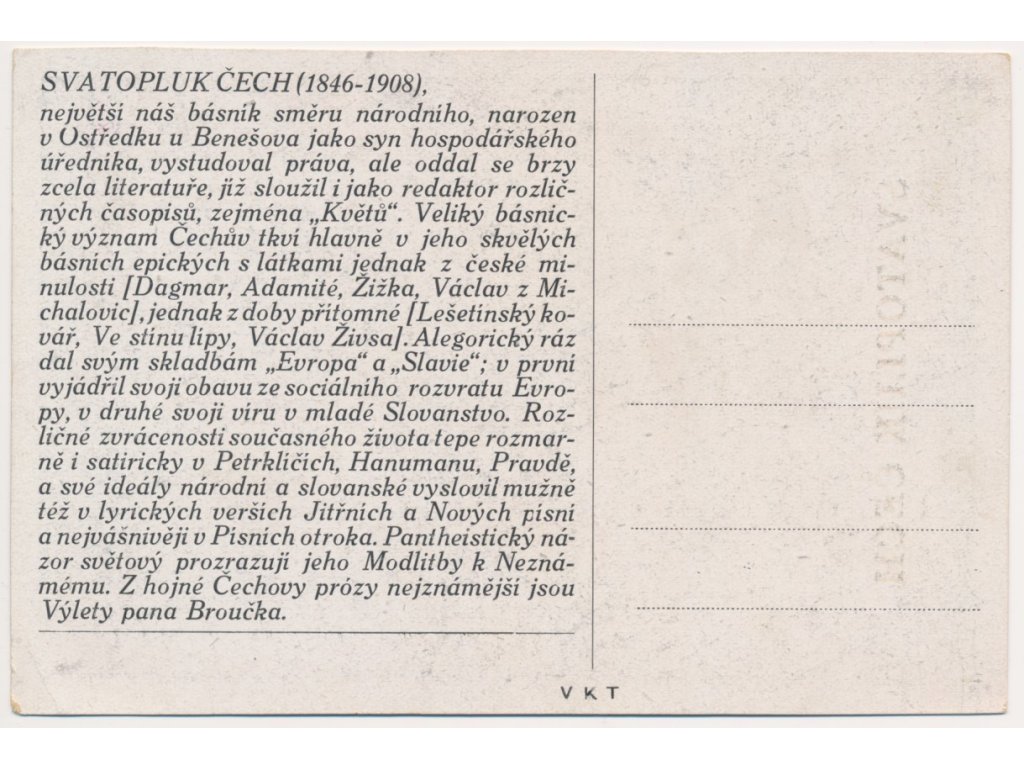 SVATOPLUK ČECH (1846-1908),
největší náš básník směru národního, narozen
v Ostředku u Benešova jako syn hospodářského
úředníka, vystudoval práva, ale oddal se brzy
zcela literatuře, jíž sloužil i jako redaktor rozlič-
ných časopisů, zejména „Květů“. Veliký básnic-
ký význam Čechův tkví hlavně v jeho skvělých
básních epických s látkami jednak z české mi-
nulosti [Dagmar, Adamité, Žižka, Václav z Mi-
chalovic], jednak z doby přítomné [Lešetínský ko-
vář, Ve stínu lípy, Václav Živsa]. Alegorický ráz
dal svým skladbám „Evropa“ a „Slavie“; v první
vyjádřil svoji obavu ze sociálního rozvratu Evro-
py, v druhé svoji víru v mladé Slovanstvo. Roz-
ličné zvrácenosti současného života tepe rozmar-
ně i satiricky v Petrklíčích, Hanumanu, Pravdě,
a své ideály národní a slovanské vyslovil mužně
též v lyrických verších Jitřních a Nových písní
a nejvášnivěji v Písních otroka. Pantheistický ná-
zor světový prozrazují jeho Modlitby k Nezná-
mému. Z hojné Čechovy prózy nejznámější jsou
Výlety pana Broučka.
VKT
SVATOPLUK ČECH